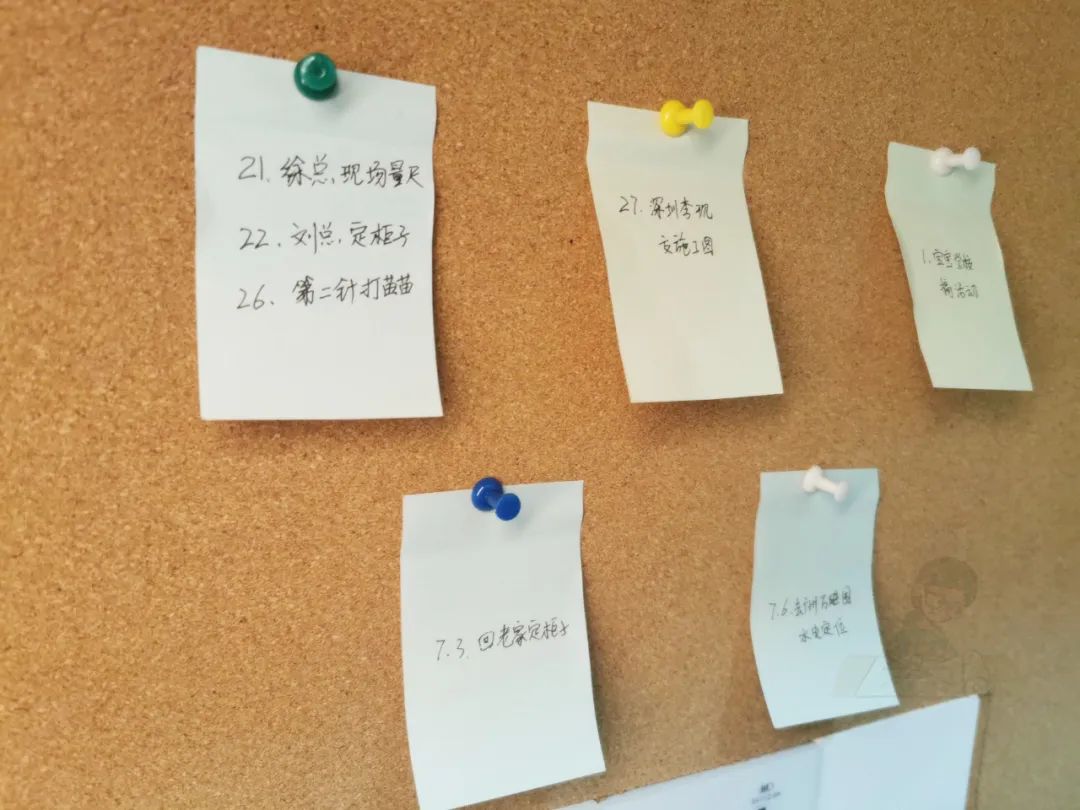 21. 徐总,现场量尺
22. 刘总,定柜子
26. 第二针打苗苗
27. 深圳李现
交施工图
1. 宝宝学校
活动
7.3. 回老家定柜子
7.6.
水电定位